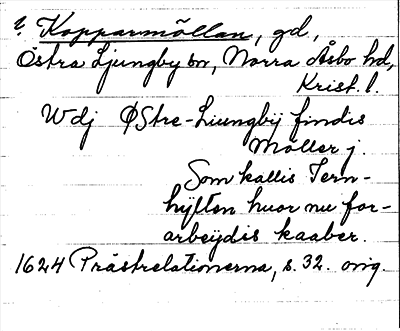 ? Kopparmöllan, gd,
Östra Ljungby sn, Norra Åsbo hd,
Krist. l.
Wdj ØStre-Liungbÿ findis
Möller j.
Som kallis Jern-
hÿtten huor nu for-
arbeÿdis kaaber.
1624 Prästrelationerna, s. 32. orig.